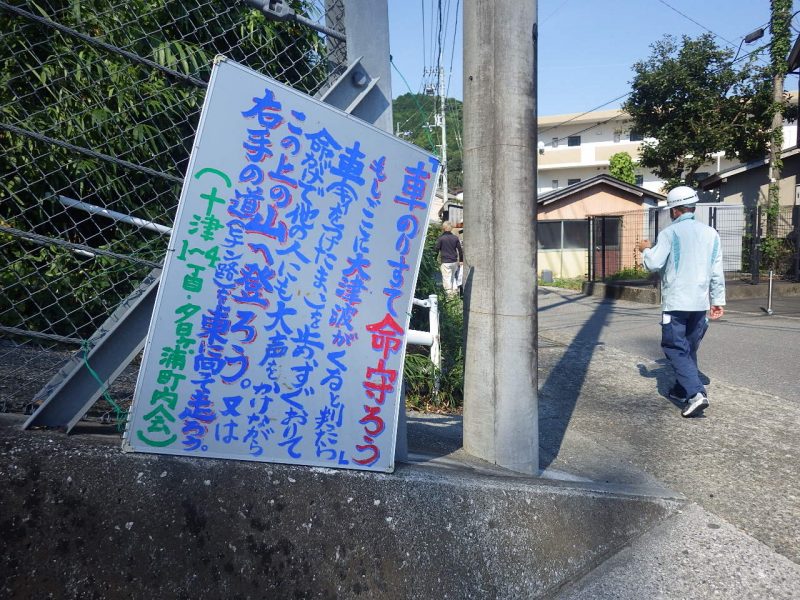 「車のりすて命守ろう」
もしここに大津波がくると判ったら
車(キーをつけたまゝ)を歩みすぐおりて
命がけで他の人にも大声をかけながら
この上の山へ登ろう。又は
右手の道(モチン路)を東に向て走ろう。
(十津1〜4丁目・夕日ヶ浦町内会)